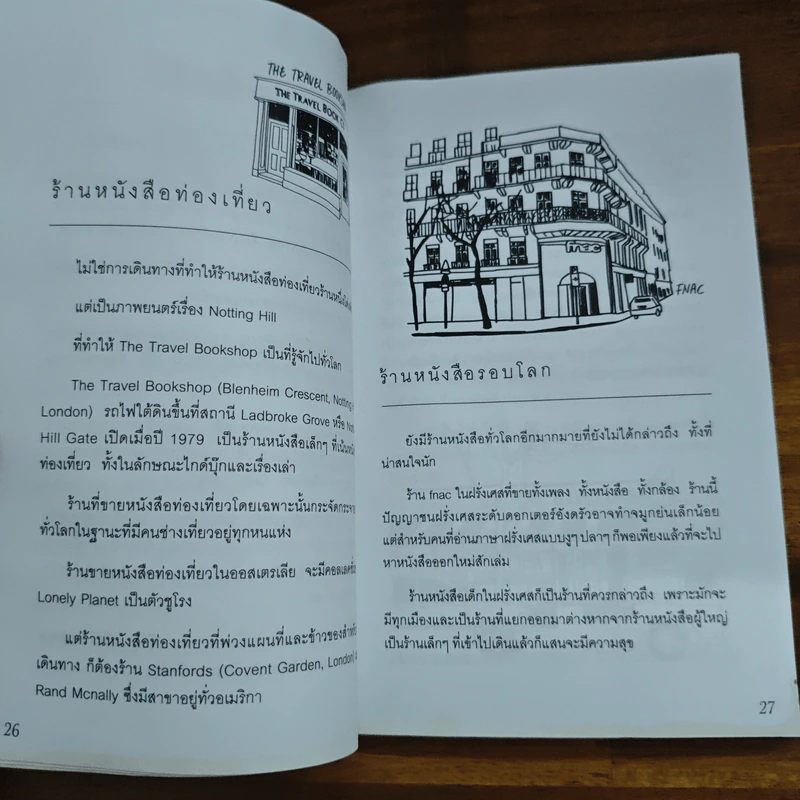 THE TRAVEL
THE TRAVEL BOOK
ร้านหนังสือท่องเที่ยว
ไม่ใช่การเดินทางที่ทำให้ร้านหนังสือท่องเที่ยวร้านหนึ่ง
แต่เป็นภาพยนตร์เรื่อง Notting Hill
ที่ทำให้ The Travel Bookshop เป็นที่รู้จักไปทั่วโลก
The Travel Bookshop (Blenheim Crescent, Notting
London) รถไฟใต้ดินขึ้นที่สถานี Ladbroke Grove หรือ
Hill Gate เปิดเมื่อปี 1979 เป็นร้านหนังสือเล็กๆ ที่เน้น
ท่องเที่ยว ทั้งในลักษณะไกด์บุ๊กและเรื่องเล่า
ร้านที่ขายหนังสือท่องเที่ยวโดยเฉพาะนั้นกระจัดกระจาย
ทั่วโลกในฐานะที่มีคนช่างเที่ยวอยู่ทุกหนแห่ง
ร้านขายหนังสือท่องเที่ยวในออสเตรเลีย จะมีคอลเลคชั่น
Lonely Planet เป็นตัวชูโรง
แต่ร้านหนังสือท่องเที่ยวที่พ่วงแผนที่และข้าวของสำหรับ
เดินทาง ก็ต้องร้าน Stanfords (Covent Garden, London)
Rand Mcnally ซึ่งมีสาขาอยู่ทั่วอเมริกา
26
fnac
FNAC
ร้านหนังสือรอบโลก
ยังมีร้านหนังสือทั่วโลกอีกมากมายที่ยังไม่ได้กล่าวถึง ทั้งที่
น่าสนใจนัก
ร้าน fnac ในฝรั่งเศสที่ขายทั้งเพลง ทั้งหนังสือ ทั้งกล้อง ร้านนี้
ปัญญาชนฝรั่งเศสระดับดอกเตอร์อังดรัวอาจทำจมูกย่นเล็กน้อย
แต่สำหรับคนที่อ่านภาษาฝรั่งเศสแบบงูๆ ปลาๆ ก็พอเพียงแล้วที่จะไป
หาหนังสือออกใหม่สักเล่ม
ร้านหนังสือเด็กในฝรั่งเศสก็เป็นร้านที่ควรกล่าวถึง เพราะมักจะ
มีทุกเมืองและเป็นร้านที่แยกออกมาต่างหากจากร้านหนังสือผู้ใหญ่
เป็นร้านเล็กๆ ที่เข้าไปเดินแล้วก็แสนจะมีความสุข
27